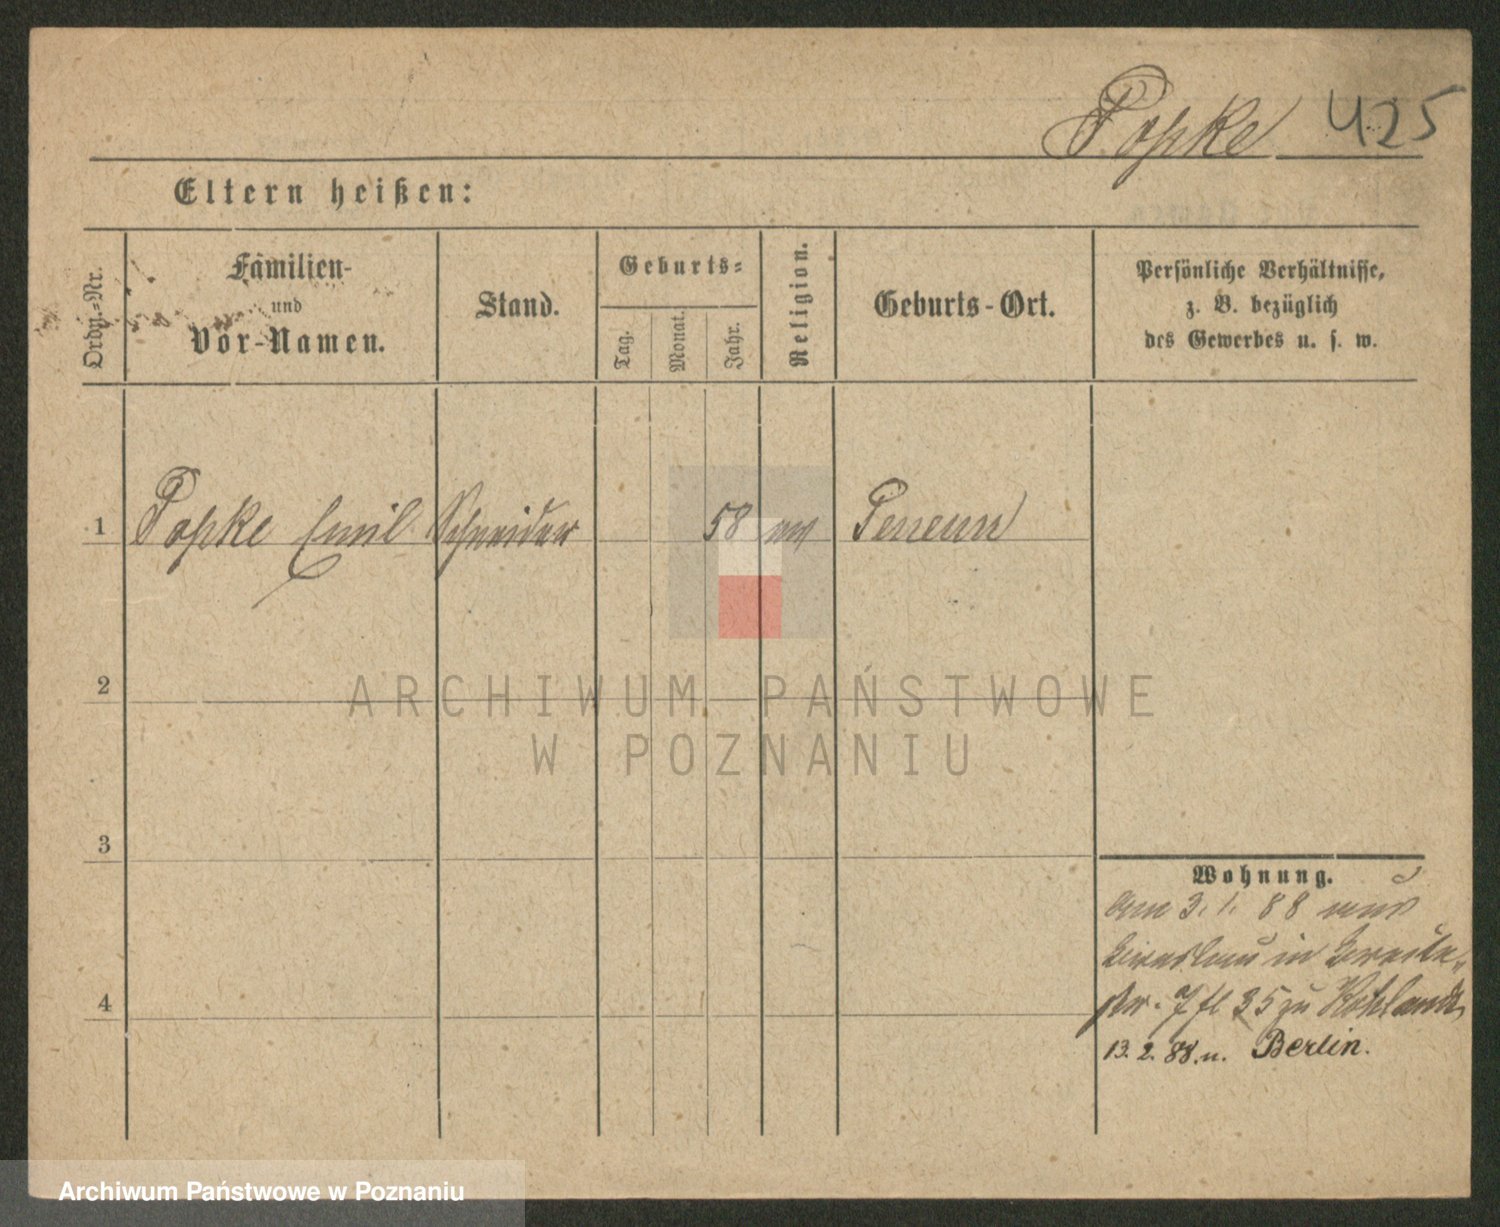 Popke 425
Eltern heißen:
Ordn.-Nr.
Familien-
und
Vor-Namen.
Stand.
Geburts-
Tag.
Monat.
Jahr.
Religion.
Geburts-Ort.
Persönliche Verhältnisse,
z. B. bezüglich
des Gewerbes u. s. w.
1 Popke Emil Schneider 58 ev Pencun
2
3
4
Wohnung.
Am 3. 1. 88 aus
Breslau in Breite-
str. 7 fl 35 zu
13. 2. 88. n. Berlin.
ARCHIWUM PAŃSTWOWE
W POZNANIU
Archiwum Państwowe w Poznaniu